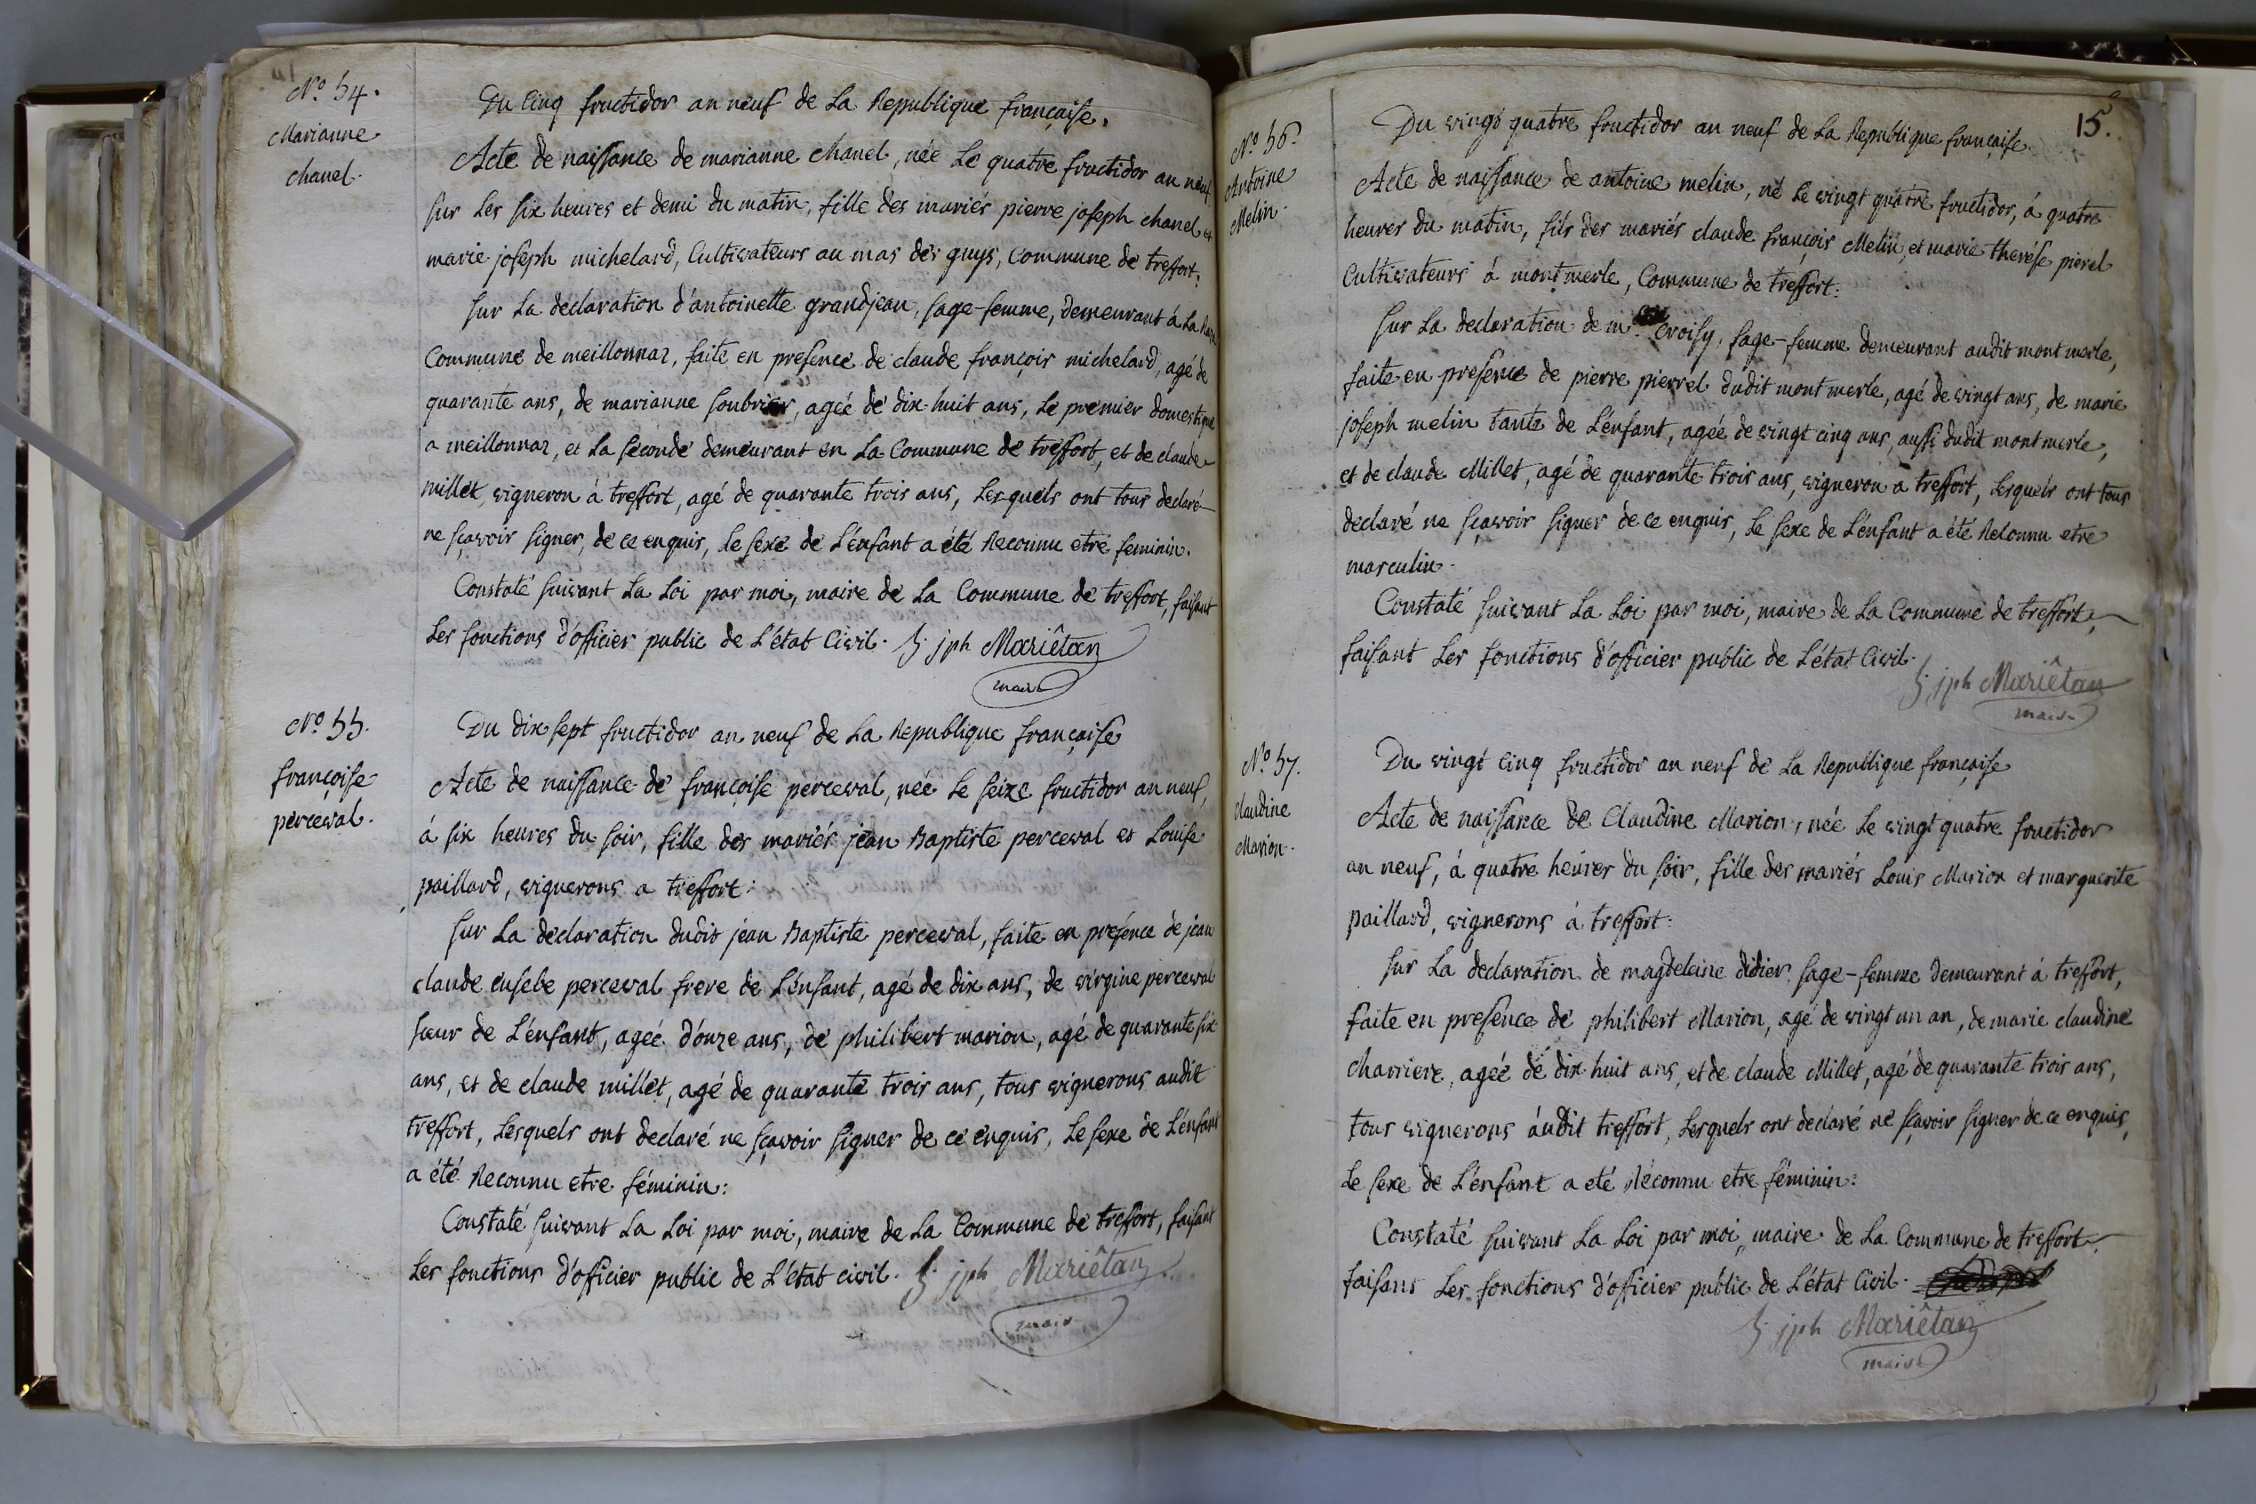 N.o 54.
Marianne
chanel.
Du Cinq fructidor an neuf de La Republique française.
Acte de naissance de marianne chanel, née Le quatre fructidor an neuf
sur Les six heures et demi du matin, fille des mariés pierre joseph chanel et
marie joseph michelard, Cultivateurs au mas des guys, Commune de treffort:
sur La declaration d'antoinette grandjean, sage-femme, demeurant à La
Commune de meillonnaz, faite en presence de claude françois michelard, agé de
quarante ans, de marianne soubrier, agée de dix-huit ans, Le premier domestique
a meillonnaz, et La seconde demeurant en La Commune de treffort, et de claude
millet, vigneron à treffort, agé de quarante trois ans, Lesquels ont tous declaré
ne sçavoir signer, de ce enquis, Le sexe de L'enfant a été Reconnu etre feminin.
Constaté suivant La Loi par moi, maire de La Commune de treffort, faisant
Les fonctions d'officier public de L'état Civil. jph Mariêtan
maire
N.o 55.
françoise
perceval.
Du dix sept fructidor an neuf de La Republique française
Acte de naissance de françoise perceval, née Le seize fructidor an neuf,
à six heures du soir, fille des mariés jean Baptiste perceval et Louise
paillard, vignerons a treffort:
sur La declaration dudit jean Baptiste perceval, faite en présence de jean
claude eusebe perceval frere de L'énfant, agé de dix ans, de virgine perceval
sœur de L'énfant, agée d'onze ans, de philibert marion, agé de quarante six
ans, et de claude millet, agé de quarante trois ans, tous vignerons audit
treffort, Lesquels ont declaré ne sçavoir signer de ce enquis, Le sexe de L'énfant
a été Reconnu etre féminin:
Constaté suivant La Loi par moi, maire de La Commune de treffort, faisant
Les fonctions d'officier public de L'état civil. jph Mariêtan
maire
15.
N.o 56.
Antoine
Melin.
Du vingt quatre fructidor an neuf de La Republique française
Acte de naissance de antoine melin, né Le vingt quatre fructidor, à quatre
heures du matin, fils des mariés claude françois Melin, et marie therése pierel
Cultivateurs à mont merle, Commune de treffort:
sur La declaration de m. croisy, sage-femme demeurant audit mont merle,
faite en presence de pierre pierrel dudit mont merle, agé de vingt ans, de marie
joseph melin tante de L'énfant, agée de vingt cinq ans, aussi dudit mont merle,
et de claude Millet, agé de quarante trois ans, vigneron a treffort, Lesquels ont tous
declaré ne sçavoir signer de ce enquis, Le sexe de L'énfant a été Reconnu etre
masculin.
Constaté suivant La Loi par moi, maire de La Commune de treffort,
faisant Les fonctions d'officier public de L'état Civil.
jph Mariêtan
maire
N.o 57.
Claudine
Marion.
Du vingt cinq fructidor an neuf de La Republique française
Acte de naissance de Claudine Marion, née Le vingt quatre fructidor
an neuf, à quatre heures du soir, fille des mariés Louis Marion et marguerite
paillard, vignerons à treffort:
sur La declaration de magdeleine didier sage-femme demeurant à treffort,
faite en presence de philibert Marion, agé de vingt un an, de marie claudine
charriere, agée de dix huit ans, et de claude Millet, agé de quarante trois ans,
tous vignerons audit treffort, Lesquels ont declaré ne sçavoir signer de ce enquis,
Le sexe de L'énfant a eté Réconnu etre féminin:
Constaté suivant La Loi par moi, maire de La Commune de treffort,
faisant Les fonctions d'officier public de L'état Civil.
jph Mariêtan
maire